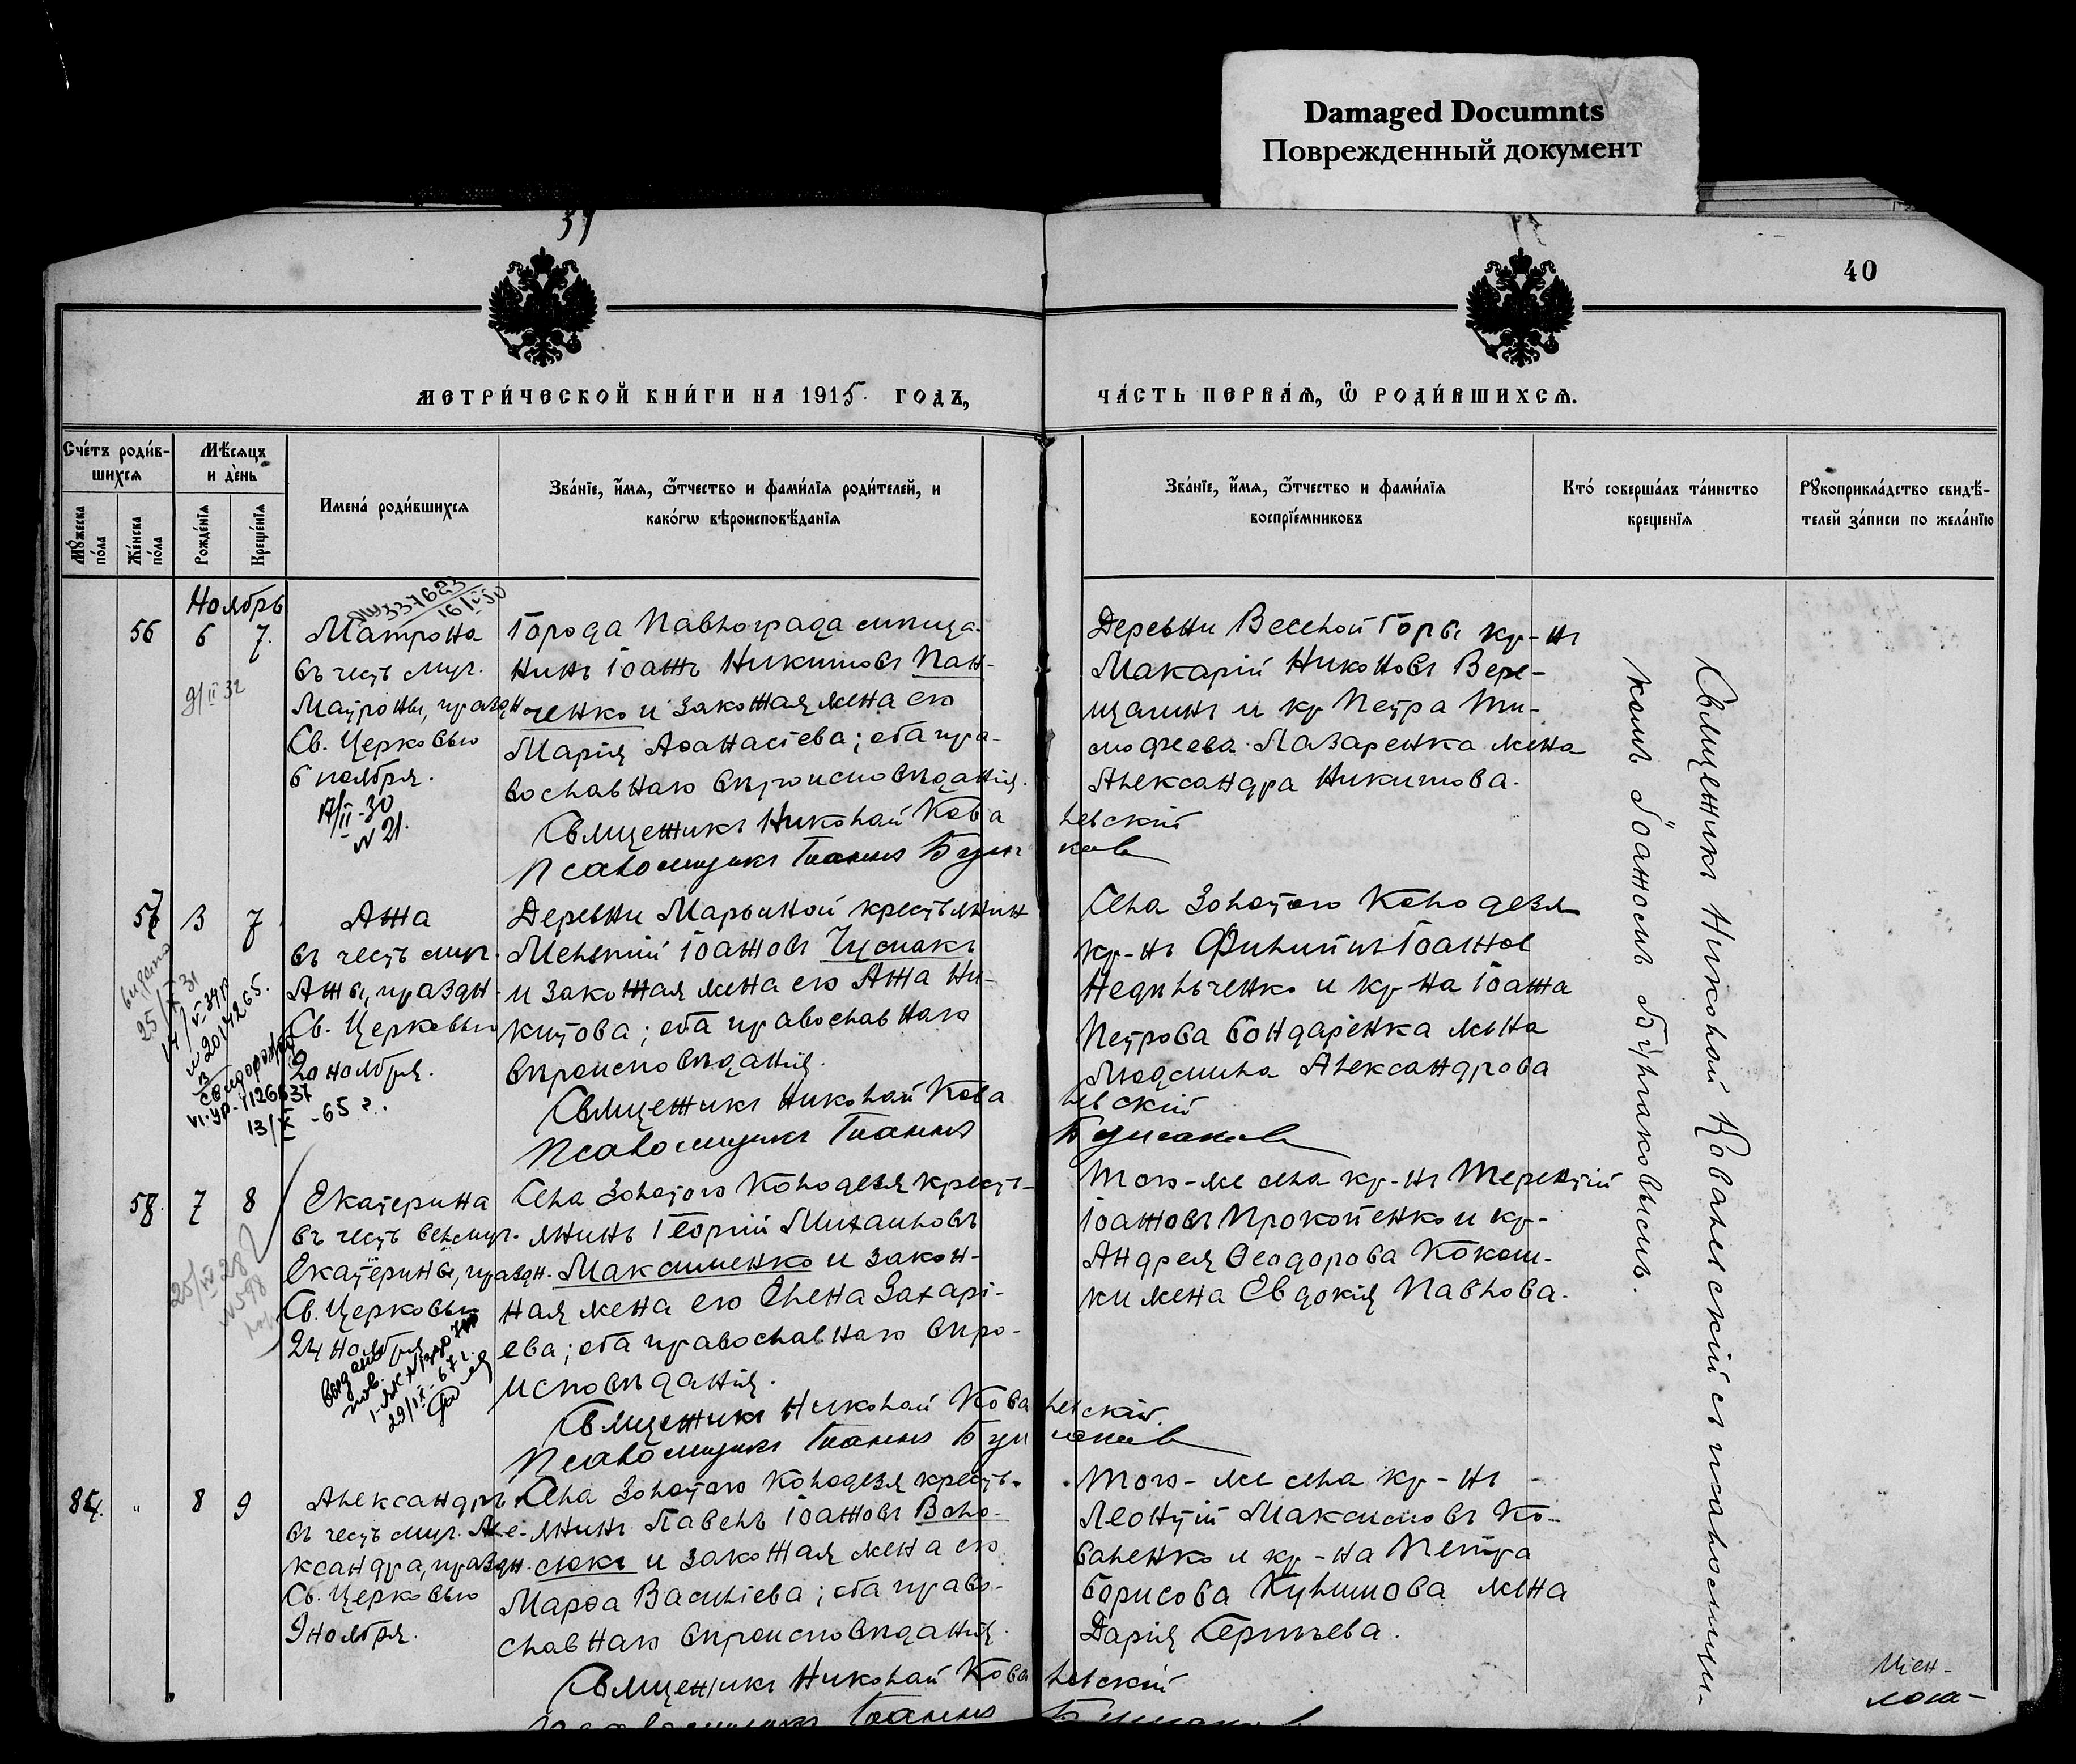 Damaged Documnts
Поврежденный документ
39
40
МЕТРИ́ЧЕСКОЙ КНИ́ГИ НА 1915. ГОДЪ,
ЧА́СТЬ ПЕРВА́Ѧ, Ѽ РОДИ́ВШИХСѦ.
Сче́тъ роди́в-
шихся
Мꙋ́жеска по́ла
Же́нска по́ла
Мѣ́сяцъ
и де́нь
Рожде́нїя
Креще́нїя
Имена́ роди́вшихся
Зва́нїе, и́мя, ѻ́тчество и фами́лїя роди́телей, и
како́гѡ вѣроисповѣ́данїя
Зва́нїе, и́мя, ѻ́тчество и фами́лїя
воспрїе́мниковъ
Кто́ соверша́лъ та́инство
креще́нїя
Рꙋкоприкла́дство свидѣ́-
телей за́писи по жела́нїю
Ноябрь
56
6
7.
9/II 32
Матрона
въ честь муч.
Матроны, праздн
Св. Церковью
6 ноября.
17/II-30
N 21.
Города Павлограда мѣща-
нинъ Іоаннъ Никитовъ Пан-
ченко и законная жена его
Марія Аѳанасіева; оба пра-
вославнаго вѣроисповѣданія.
Священникъ Николай Ковалевскій
Псаломщикъ Іоаннъ
Деревни Веселой Горы кр-нъ
Макарій Никоновъ Вере-
щагинъ и кр Петра Ти-
моѳеева Лазаренка жена
Александра Никитова.
57
3
7
Анна
въ честь муч.
Анны, праздн.
Св. Церковью
20 ноября.
13/X -65 г.
Деревни Марьиной крестьянин
Мелетій Іоанновъ Чумакъ
и законная жена его Анна Ни-
китова; оба православнаго
вѣроисповѣданія.
Священникъ Николай Ковалевскій
Псаломщикъ Іоаннъ
Села Золотого Колодезя
кр-нъ Филиппъ Іоаннов
Недѣльченко и кр-на Іоанна
Петрова Бондаренка жена
Людмила Александрова
58.
7
8
Екатерина
въ честь велмуч.
Екатерины, праздн.
Св. Церковью
24 ноября
Села Золотого Колодезя кресть-
янинъ Георгій Михаиловъ
Максименко и закон-
ная жена его Елена Захарі-
ева; оба православнаго вѣро-
исповѣданія.
Священникъ Николай Ковалевскій.
Псаломщикъ Іоаннъ
Того-же села кр-нъ Терентій
Іоанновъ Прокопенко и кр-
Андрея Ѳеодорова Кокош-
ки жена Евдокія Павлова.
84.
"
8
9
Александръ
въ честь муч. Але-
ксандра, праздн.
Св. Церковью
9 ноября.
Села Золотого Колодезя кресть-
янинъ Павелъ Іоанновъ Воло-
сюкъ и законная жена его
Марѳа Василіева; оба право-
славнаго вѣроисповѣданія.
Священникъ Николай Ковалевскій
Того-же села кр-нъ
Леонтій Максимовъ Ко-
валенко и кр-на Петра
Борисова Кулишова жена
Дарія Сергіева.
Священникъ Николай Ковалевскій съ псаломщи-
комъ Іоанномъ